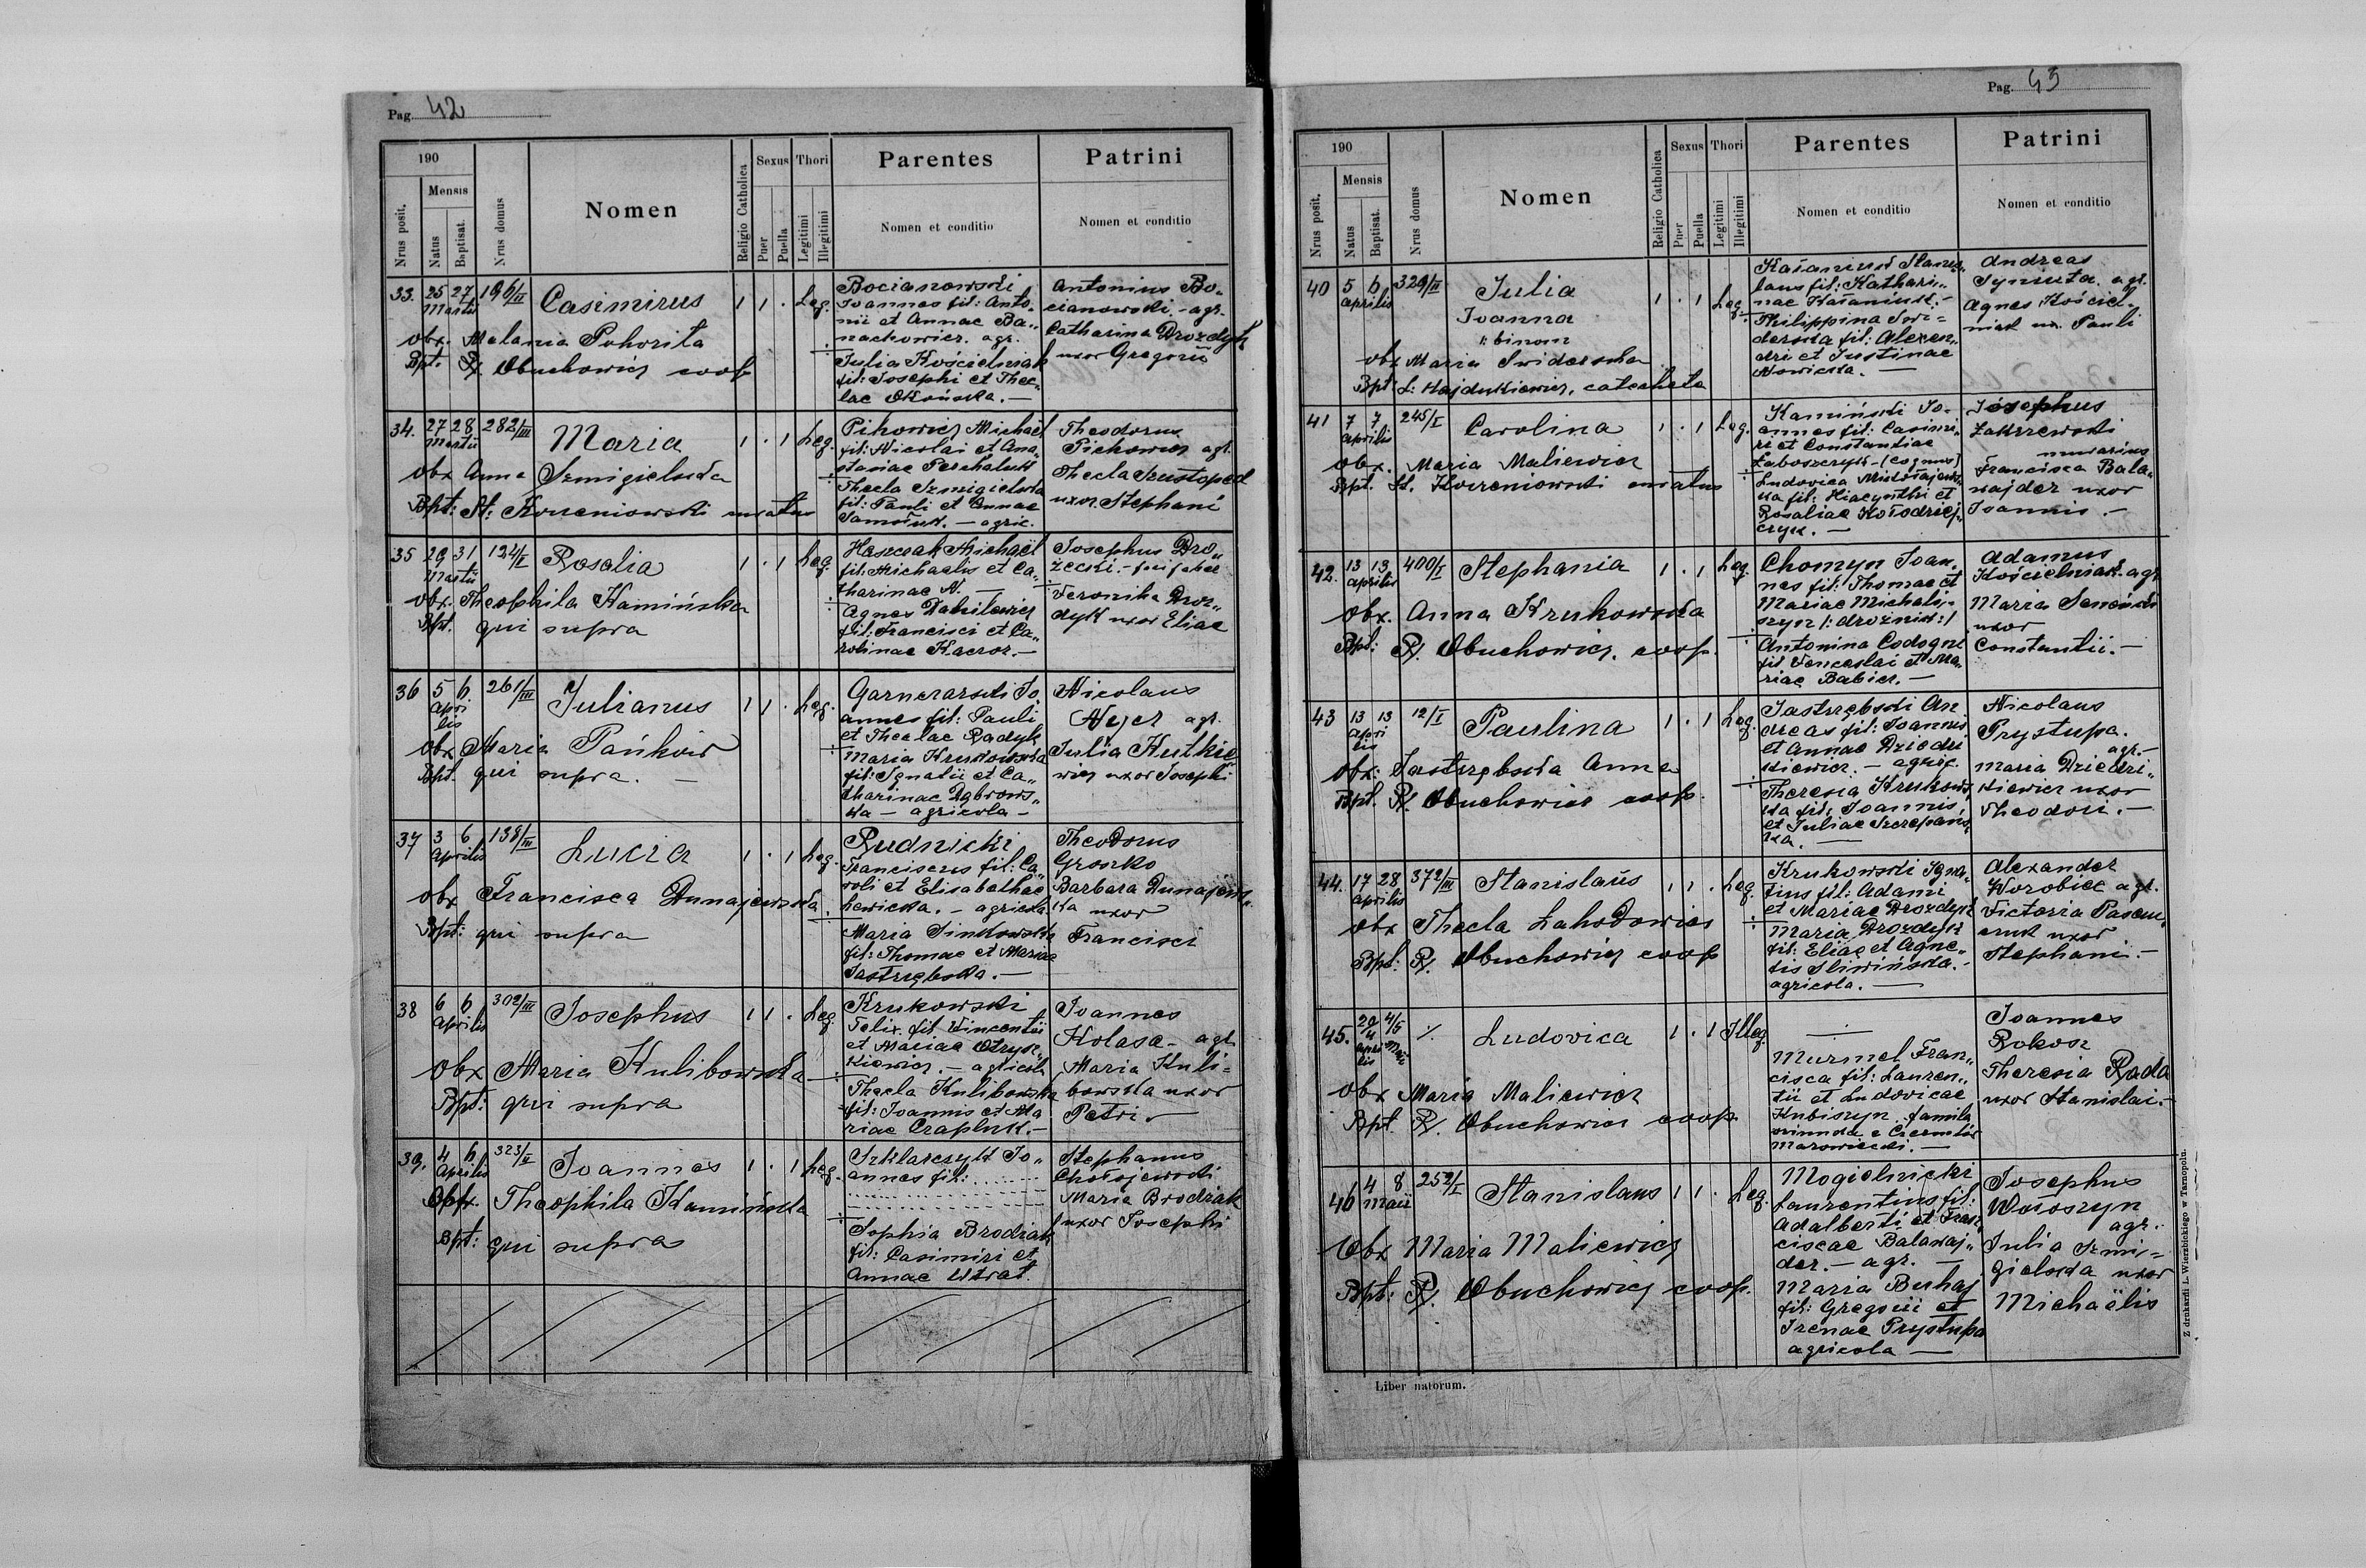 Pag. 42
190
Nrus posit.
Mensis
Natus
Baptisat.
Nrus domus
Nomen
Religio Catholica
Sexus
Puer
Puella
Thori
Legitimi
Illegitimi
Parentes
Nomen et conditio
Patrini
Nomen et conditio
33. 25 27 196/II Casimirus 1 1 . Leg.
Martii
obx. Melania Pohorita
Bpt. R. Obuchowicz coop
Bocianowski
Joannes fil: Anto„
nii et Annae Ba„
nachowicz. agr.
Julia Kościelniak
fil: Josephi et Thec„
lae Okońska. —
Antonius Bo„
cianowski. - agr.
Catharina Drozdyk
uxor Gregorii
34. 27 28 282/III Maria 1 . 1 Leg.
Martii
obx Anna Szmigielska
Bpt: St: Korzeniowski curatus
Pihowicz Michaël
fil: Nicolai et Ana„
stasiae Paschaluk
Thecla Szmigielska
fil: Pauli et Annae
— agric.
Theodorus
Pichowicz agr.
Thecla Szustoped
uxor Stephani
35 29 31 124/I Rosalia 1 . 1 Leg.
Martii
obx. Theophila Kamińska
Bpt. qui supra
Michaël
fil: Michaelis et Ca„
tharinae N. —
Agnes Danilewicz
fil: Francisci et Ca„
rolinae Kaczor. —
Josephus Dro„
żecki. -
Veronika Droz„
dyk uxor Eliae
36 5 6 261/III Julianus 1 1 . Leg.
Apri
lis
obx Maria Pańków
Bpt. qui supra. —
Garncarski Jo„
annes fil: Pauli
et Theclae Radyk
Maria Krukowska
fil: Ignatii et Ca„
tharinae Dąbrows„
ka — agricola —
Nicolaus
Nejer agr.
Julia Hutkie„
wicz uxor Josephi
37 3 6 138/III Lucia 1 . 1 Leg.
Aprilis
obx Francisca Dunajewska
Bpt: qui supra
Rudnicki
Franciscus fil: Ca„
roli et Elisabethae
Lewicka. - agricola
Maria Sinkowska
fil: Thomae et Mariae
Jastrzębska. —
Theodorus
Groszko
Barbara Dunajews„
ka uxor
Francisci
38 6 6 302/III Josephus 1 1 . Leg.
Aprilis
obx Maria Kulibowska
Bpt: qui supra
Krukowski
Felix fil Vincentii
et Mariae
- agricola
Thecla Kulibowska
fil: Joannis et Ma
riae Czapluk. —
Joannes
Kolasa - agr.
Maria Kuli=
bowska uxor
Petri. —
39. 4 6 323/II Joannes 1 . 1 Leg.
Aprilis
Obx. Theophila Kamińska
Bpt: qui supra
Szklarczyk Jo„
annes fil:
Sophia Brodziak
fil: Casimiri et
Annae Utrat.
Stephanus
Chołojewski
Maria Brodziak
uxor Josephi
Pag. 43
190
Nrus posit.
Mensis
Natus
Baptisat.
Nrus domus
Nomen
Religio Catholica
Sexus
Puer
Puella
Thori
Legitimi
Illegitimi
Parentes
Nomen et conditio
Patrini
Nomen et conditio
40 5 6 329/II Julia 1 . 1 Leg.
Aprilis Joanna
binom
obx Maria Swiderska
Bpt: L: Hajdukiewicz, catecheta
Kataniuk Stanis„
laus fil: Kathari„
nae Kataniuk. -
Philippina Swi=
derska fil: Alexan„
dri et Justinae
Nowicka. —
Andreas
Syniuta. agr.
Agnes Kościel„
niak ux. Pauli
41 7 7 245/I Carolina 1 . 1 Leg.
Aprilis
obx. Maria Maliewicz
Bpt. St. Korzeniowski curatus
Kamiński Jo„
annes fil: Casimi„
ri et Constantiae
Łaboszczyk - (cognus)
Ludovica Mikołajews„
ka fil: Hiacynthi et
Rosaliae Kołodziej„
czyk. —
Josephus
Zakrzewski
murarius
Francisca Bala„
wajder uxor
Joannis. -
42. 13 13 400/I Stephania 1 . 1 Leg.
Aprilis
Obx. Anna Krukowska
Bpt: R. Obuchowicz. coop.
Chomyn Joan„
nes fil: Thomae et
Mariae Michali„
szyn /: drożnik :/
Antonina Codogni
fil Venceslai et Ma„
riae Babicz. —
Adamus
Kościelniak. agr
Maria
uxor
Constantii. —
43 13 13 12/I Paulina 1 . 1 Leg.
Apri
lis
obx: Jastrzębska Anna
Bpt. R. Obuchowicz coop.
Jastrzębski An
dreas fil: Joannis
et Annae Dziedzi
kiewicz. - agric.
Theresia Krukows„
ka fil: Joannis
et Juliae Szczepańs„
ka. —
Nicolaus
Prystupa.
agr. -
Maria Dziedzi„
kiewicz uxor
Theodori. —
44. 17 28 372/III Stanislaus 1 1 . Leg.
Aprilis
obx Thecla Lahodowicz
Bpt: R. Obuchowicz coop
Krukowski Igna„
tius fil: Adami
et Mariae Drozdyk
Maria Drozdyk
fil: Eliae et Agne„
tis Sliwińska. -
agricola. —
Alexander
Worobiec agr.
Victoria
uxor
Stephani. —
45. 29/4 4/5 ·/. Ludovica 1 . 1 Illeg.
Apri Maii
lis
obx Maria Maliewicz
Bpt. R. Obuchowicz coop.
Murmel Fran„
cisca fil: Lauren„
tii et Ludovicae
Kubiszyn famula
oriunda e
Joannes
Rokosz
Theresia Rada
uxor Stanislai. -
46 4 8 252/I Stanislaus 1 1 . Leg.
Maii
Obx Maria Maliewicz
Bpt: R. Obuchowicz coop.
Mogielnicki
Laurentius fil:
Adalberti et Fran„
ciscae Balawaj„
der. - agr. —
Maria Buhaj
fil: Gregorii et
Irenae Prystupa
agricola —
Josephus
Wołoszyn
agr.
Julia Szmi=
gielska uxor
Michaëlis
Liber natorum.
Z drukarni L. Wierzbickiego w Tarnopolu.